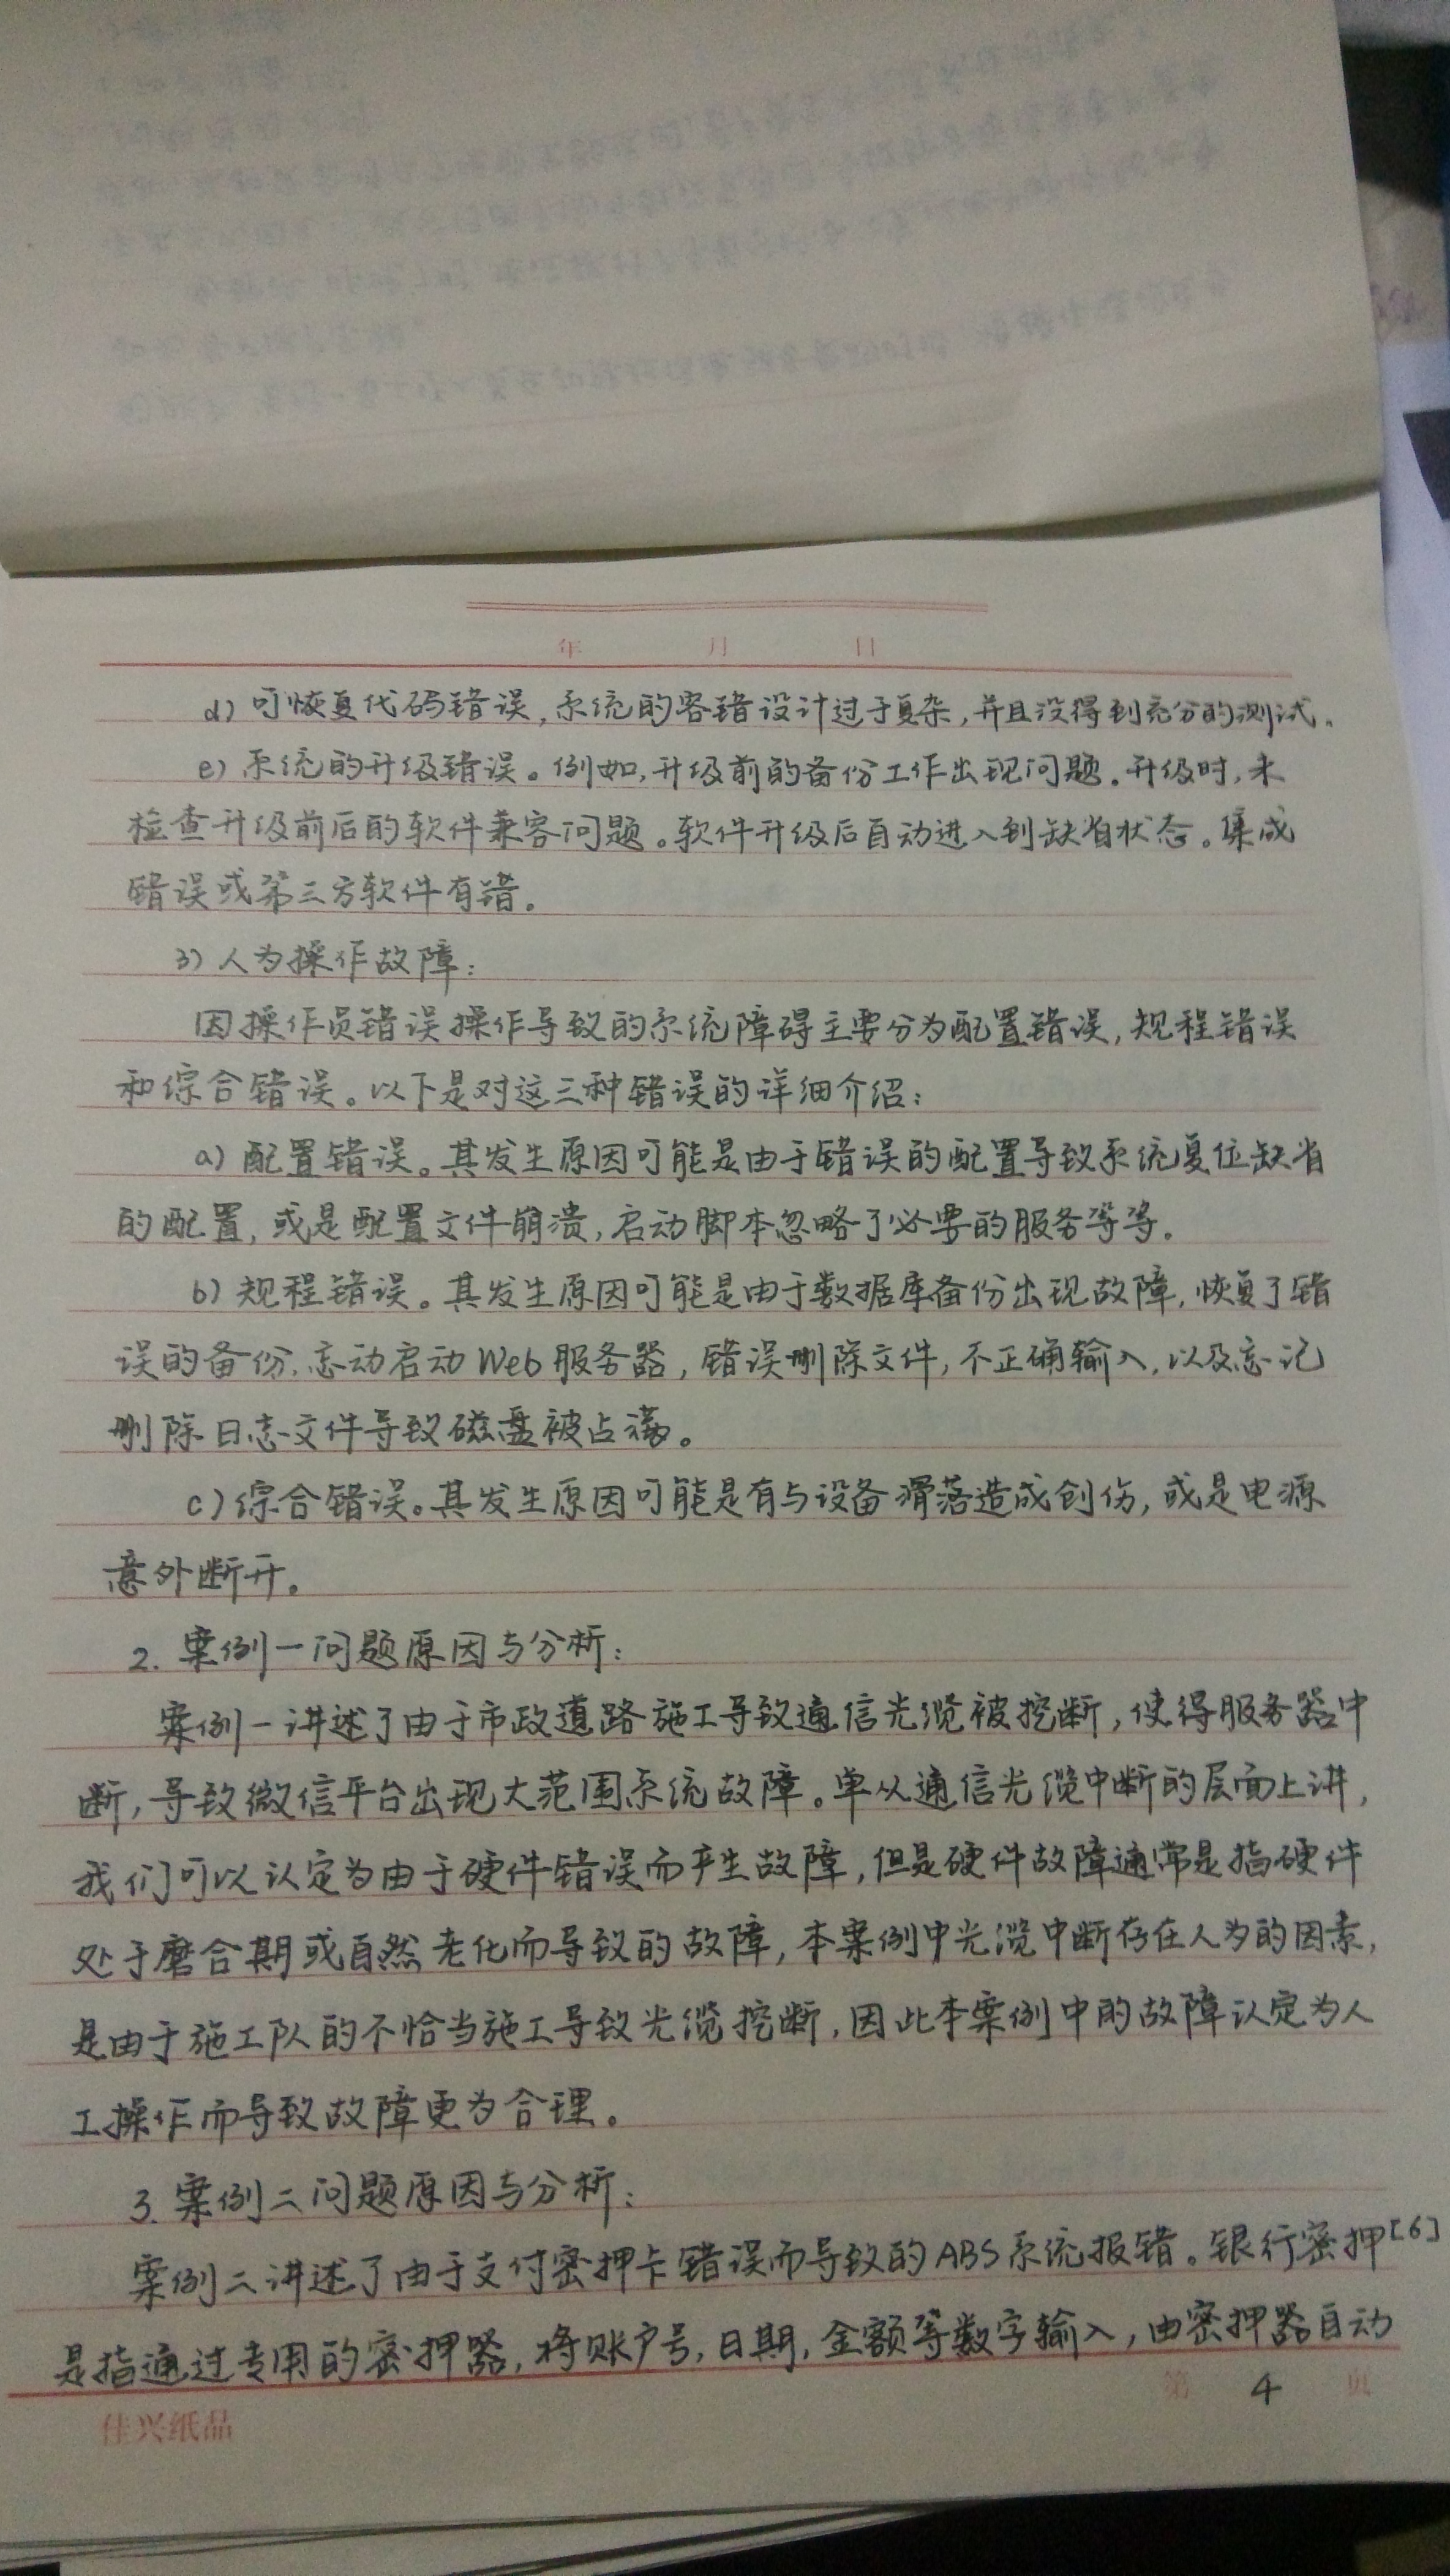 年 月 日
d) 可恢复代码错误,系统的容错设计过于复杂,并且没得到充分的测试。
e) 系统的升级错误。例如,升级前的备份工作出现问题.升级时,未
检查升级前后的软件兼容问题。软件升级后自动进入到缺省状态。集成
错误或第三方软件有错。
3) 人为操作故障:
因操作员错误操作导致的系统障碍主要分为配置错误,规程错误
和综合错误。以下是对这三种错误的详细介绍:
a) 配置错误。其发生原因可能是由于错误的配置导致系统复位缺省
的配置,或是配置文件崩溃,启动脚本忽略了必要的服务等等。
b) 规程错误。其发生原因可能是由于数据库备份出现故障,恢复了错
误的备份,忘动启动Web服务器,错误删除文件,不正确输入,以及忘记
删除日志文件导致磁盘被占满。
c) 综合错误。其发生原因可能是有与设备滑落造成创伤,或是电源
意外断开。
2. 案例一问题原因与分析:
案例一讲述了由于市政道路施工导致通信光缆被挖断,使得服务器中
断,导致微信平台出现大范围系统故障。单从通信光缆中断的层面上讲,
我们可以认定为由于硬件错误而产生故障,但是硬件故障通常是指硬件
处于磨合期或自然老化而导致的故障,本案例中光缆中断存在人为的因素,
是由于施工队的不恰当施工导致光缆挖断,因此本案例中的故障认定为人
工操作而导致故障更为合理。
3. 案例二问题原因与分析:
案例二讲述了由于支付密押卡错误而导致的ABS系统报错。银行密押[6]
是指通过专用的密押器,将账户号,日期,金额等数字输入,由密押器自动
第 4 页
佳兴纸品